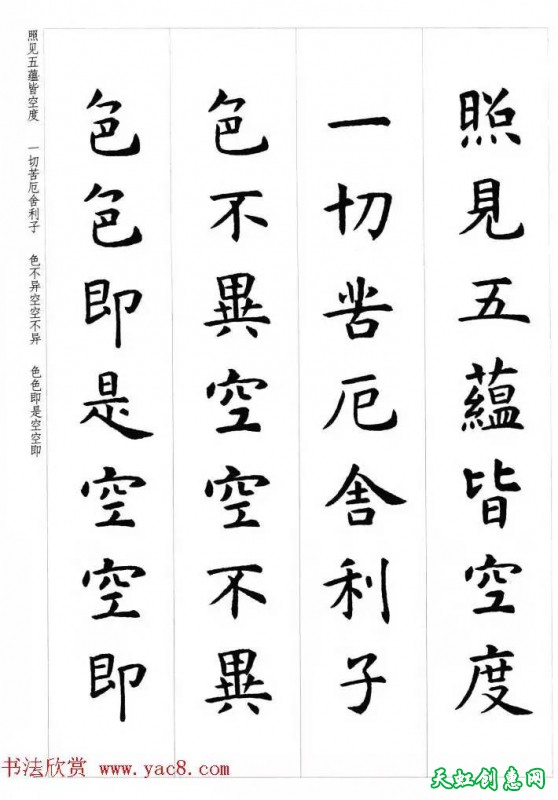 照見五蘊皆空度
一切苦厄舍利子
色不異空空不異
色色即是空空即
照见五蕴皆空度 一切苦厄舍利子 色不异空空不异 色色即是空空即
书法欣赏 www.yac8.com
天虹创意网